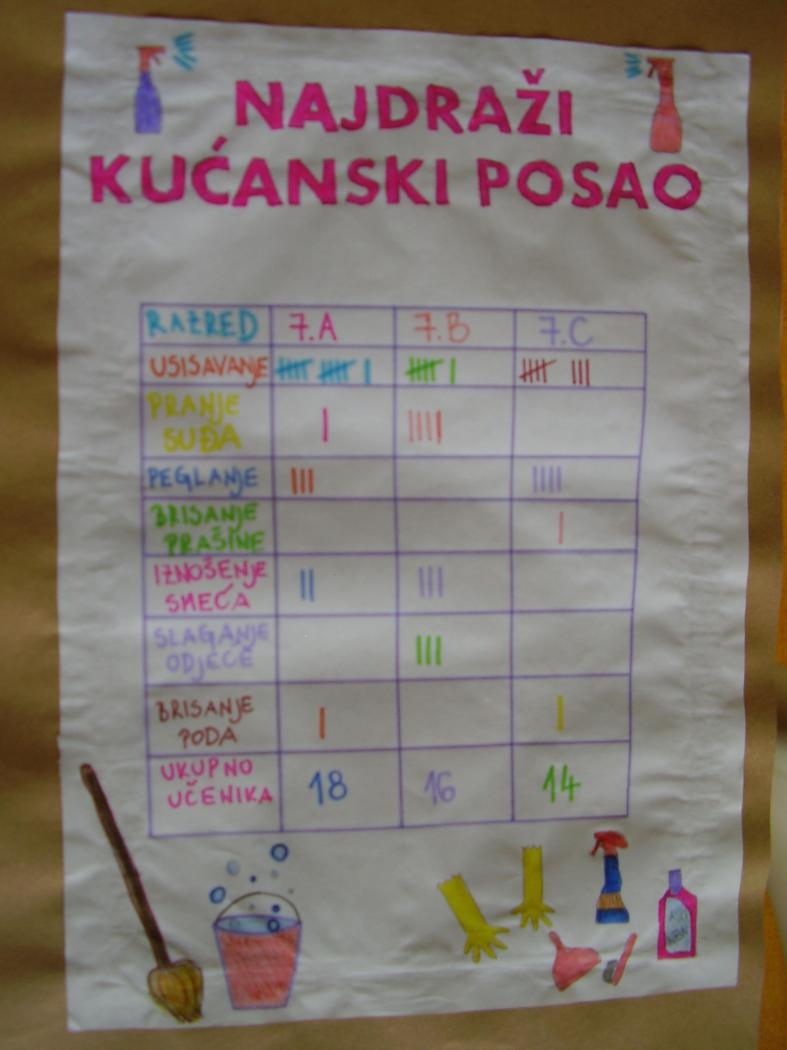 NAJDRAŽI
KUĆANSKI POSAO
RAZRED 7.A 7.B 7.C
USISAVANJE
PRANJE
SUĐA
PEGLANJE
BRISANJE
PRAŠINE
IZNOŠENJE
SMEĆA
SLAGANJE
ODJEĆE
BRISANJE
PODA
UKUPNO
UČENIKA 18 16 14